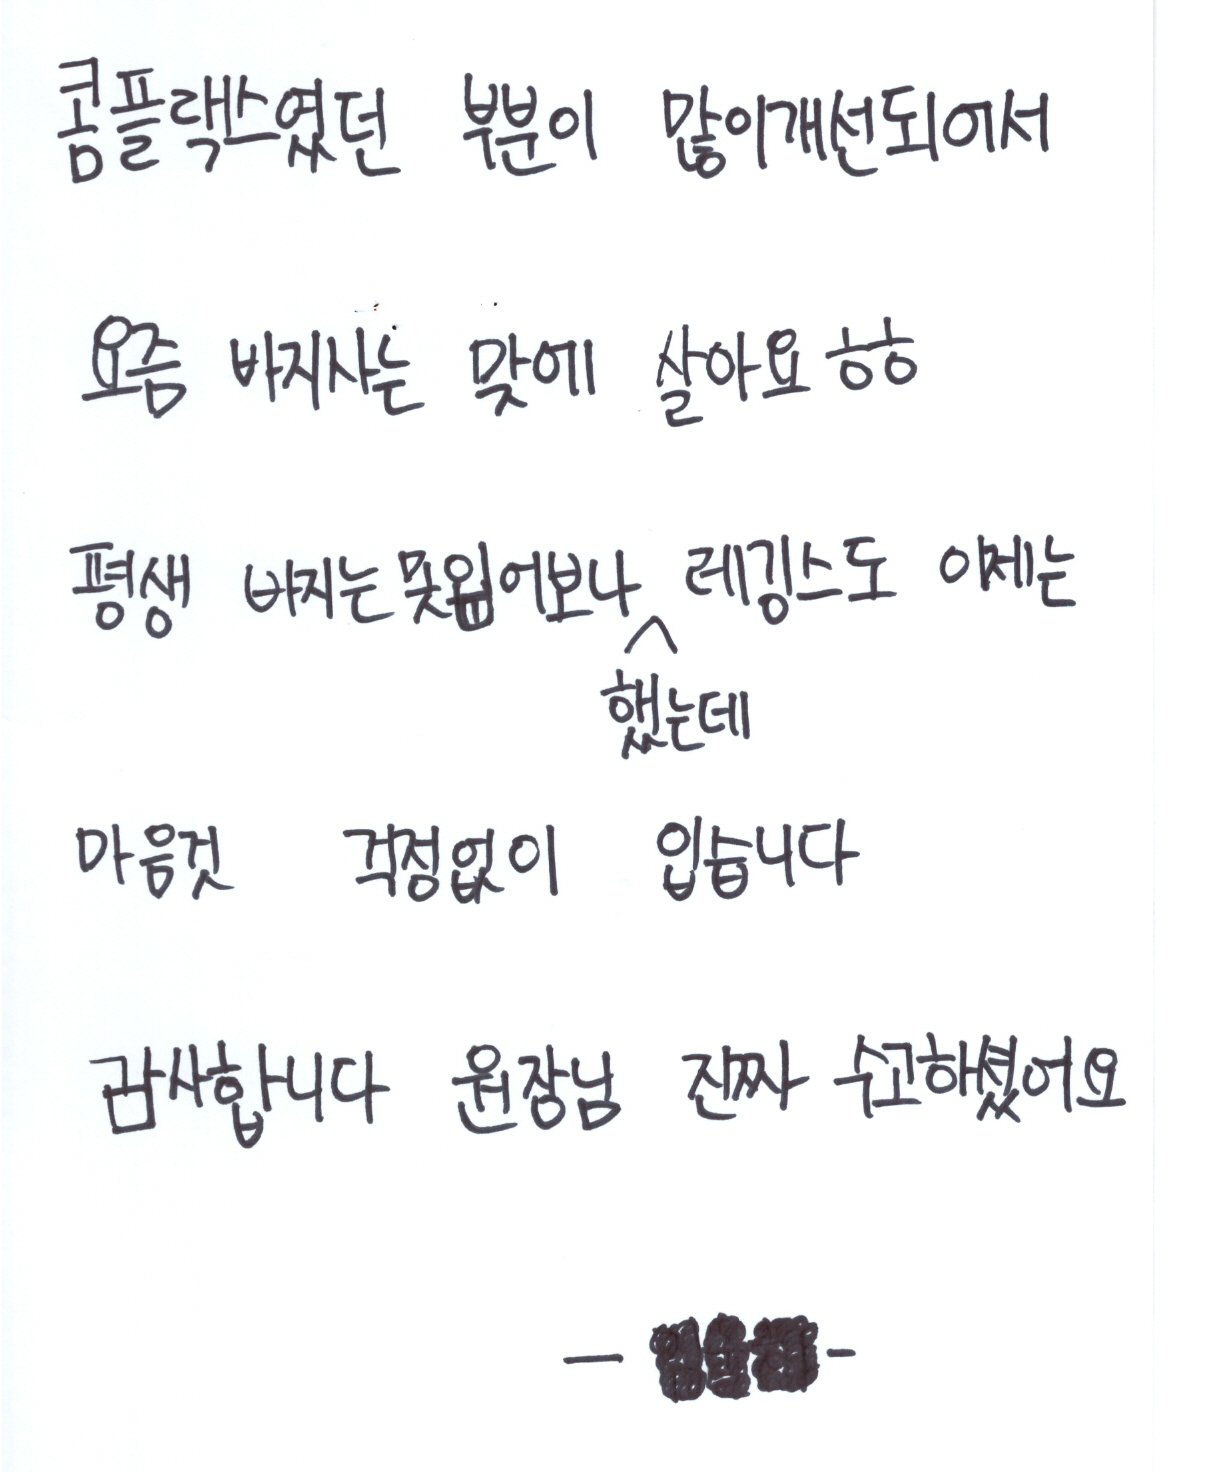 콤플랙스였던 부분이 많이개선되어서
요즘 바지사는 맛에 살아요 ㅎㅎ
평생 바지는 못입어보나 했는데 레깅스도 이제는
마음껏 걱정없이 입습니다
감사합니다 원장님 진짜 수고하셨어요